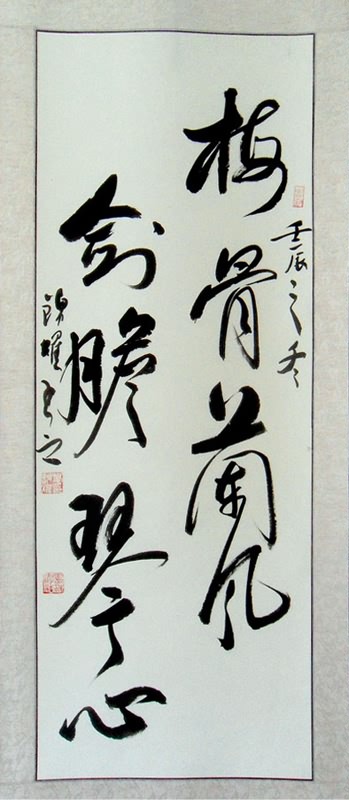 壬辰之冬
梅骨兰风
剑胆琴心
锦耀书之